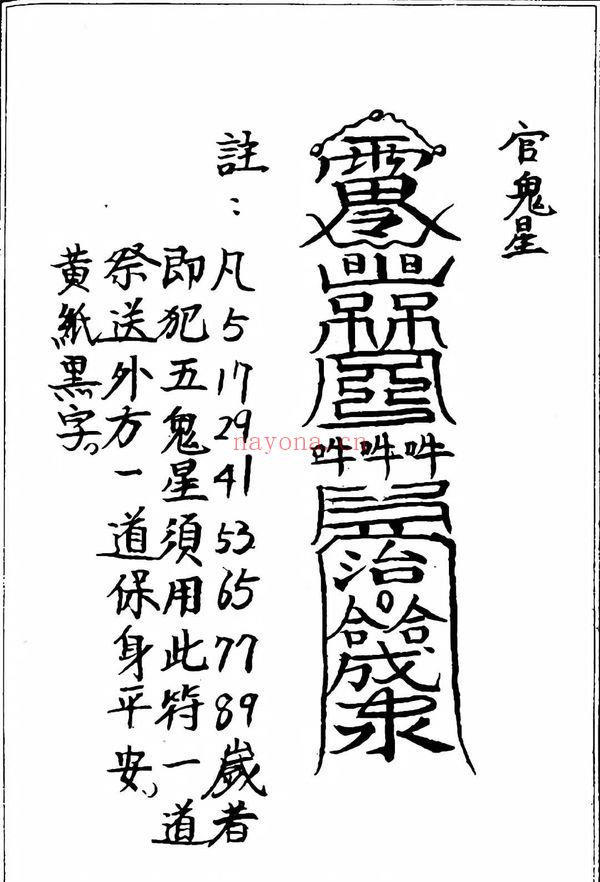 官鬼星
吽吽吽
治
合合
註：
凡5 17 29 41 53 65 77 89歲者
即犯五鬼星須用此符一道
祭送外方一道保身平安。
黄紙黑字。
nayona.cn